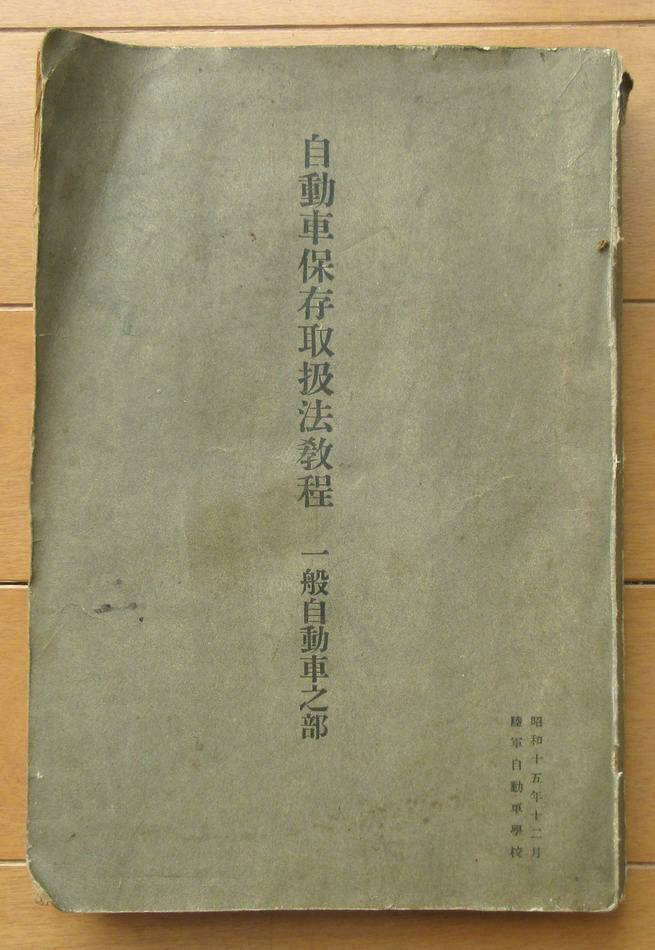 昭和十五年十二月
陸軍自動車學校
自動車保存取扱法教程 一般自動車之部